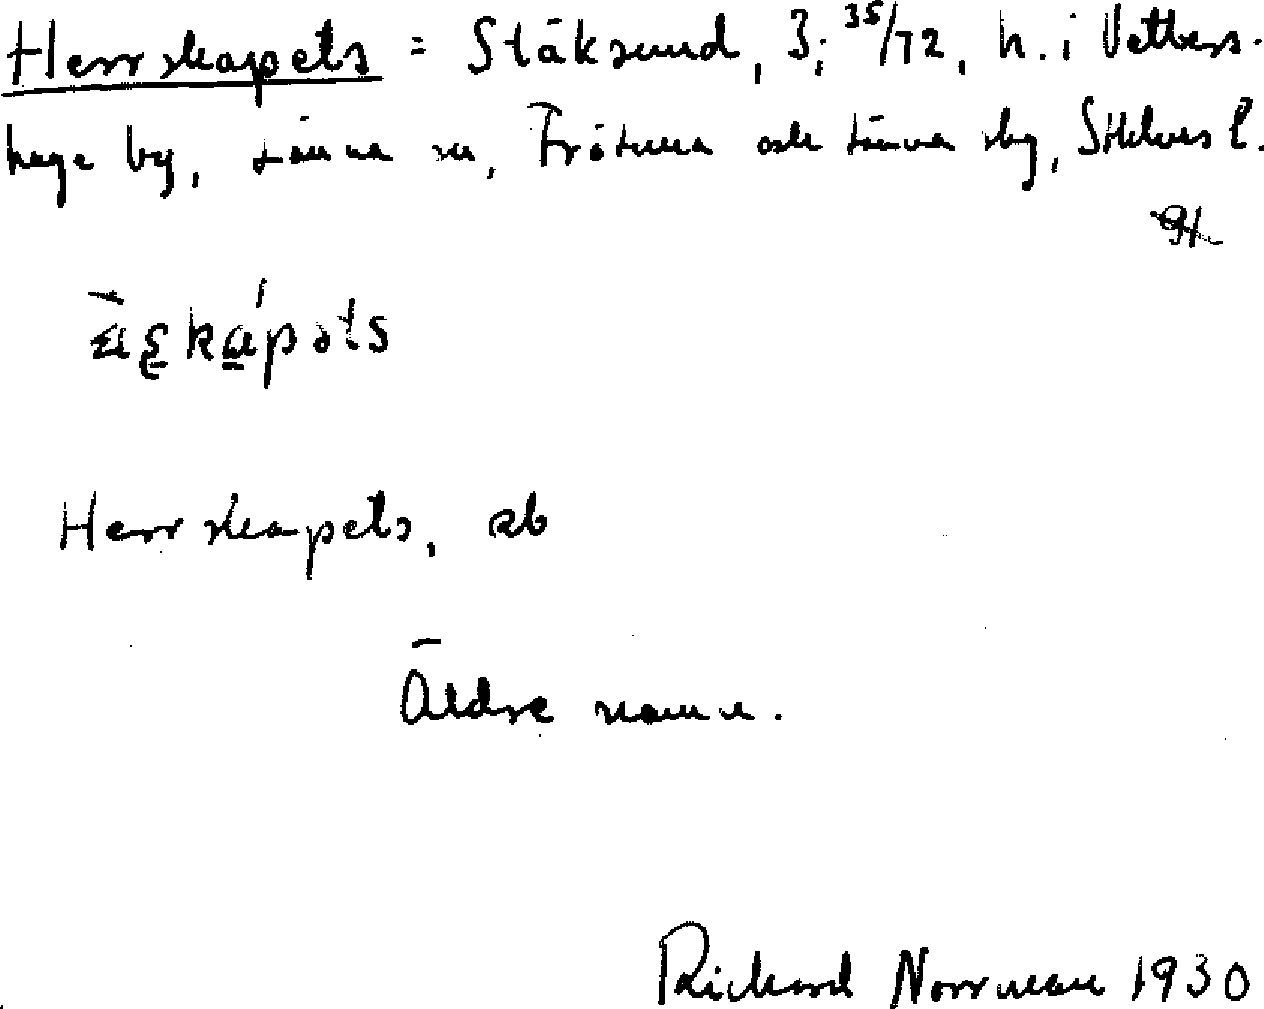 Herrskapets = Stäksund, 3; 35/72, h. i Vetters-
haga by, Länna sn, Frötuna och Länna skg, Sthlms l.
Herrskapets, ab
Äldre namn.
Richard Norrman 1930